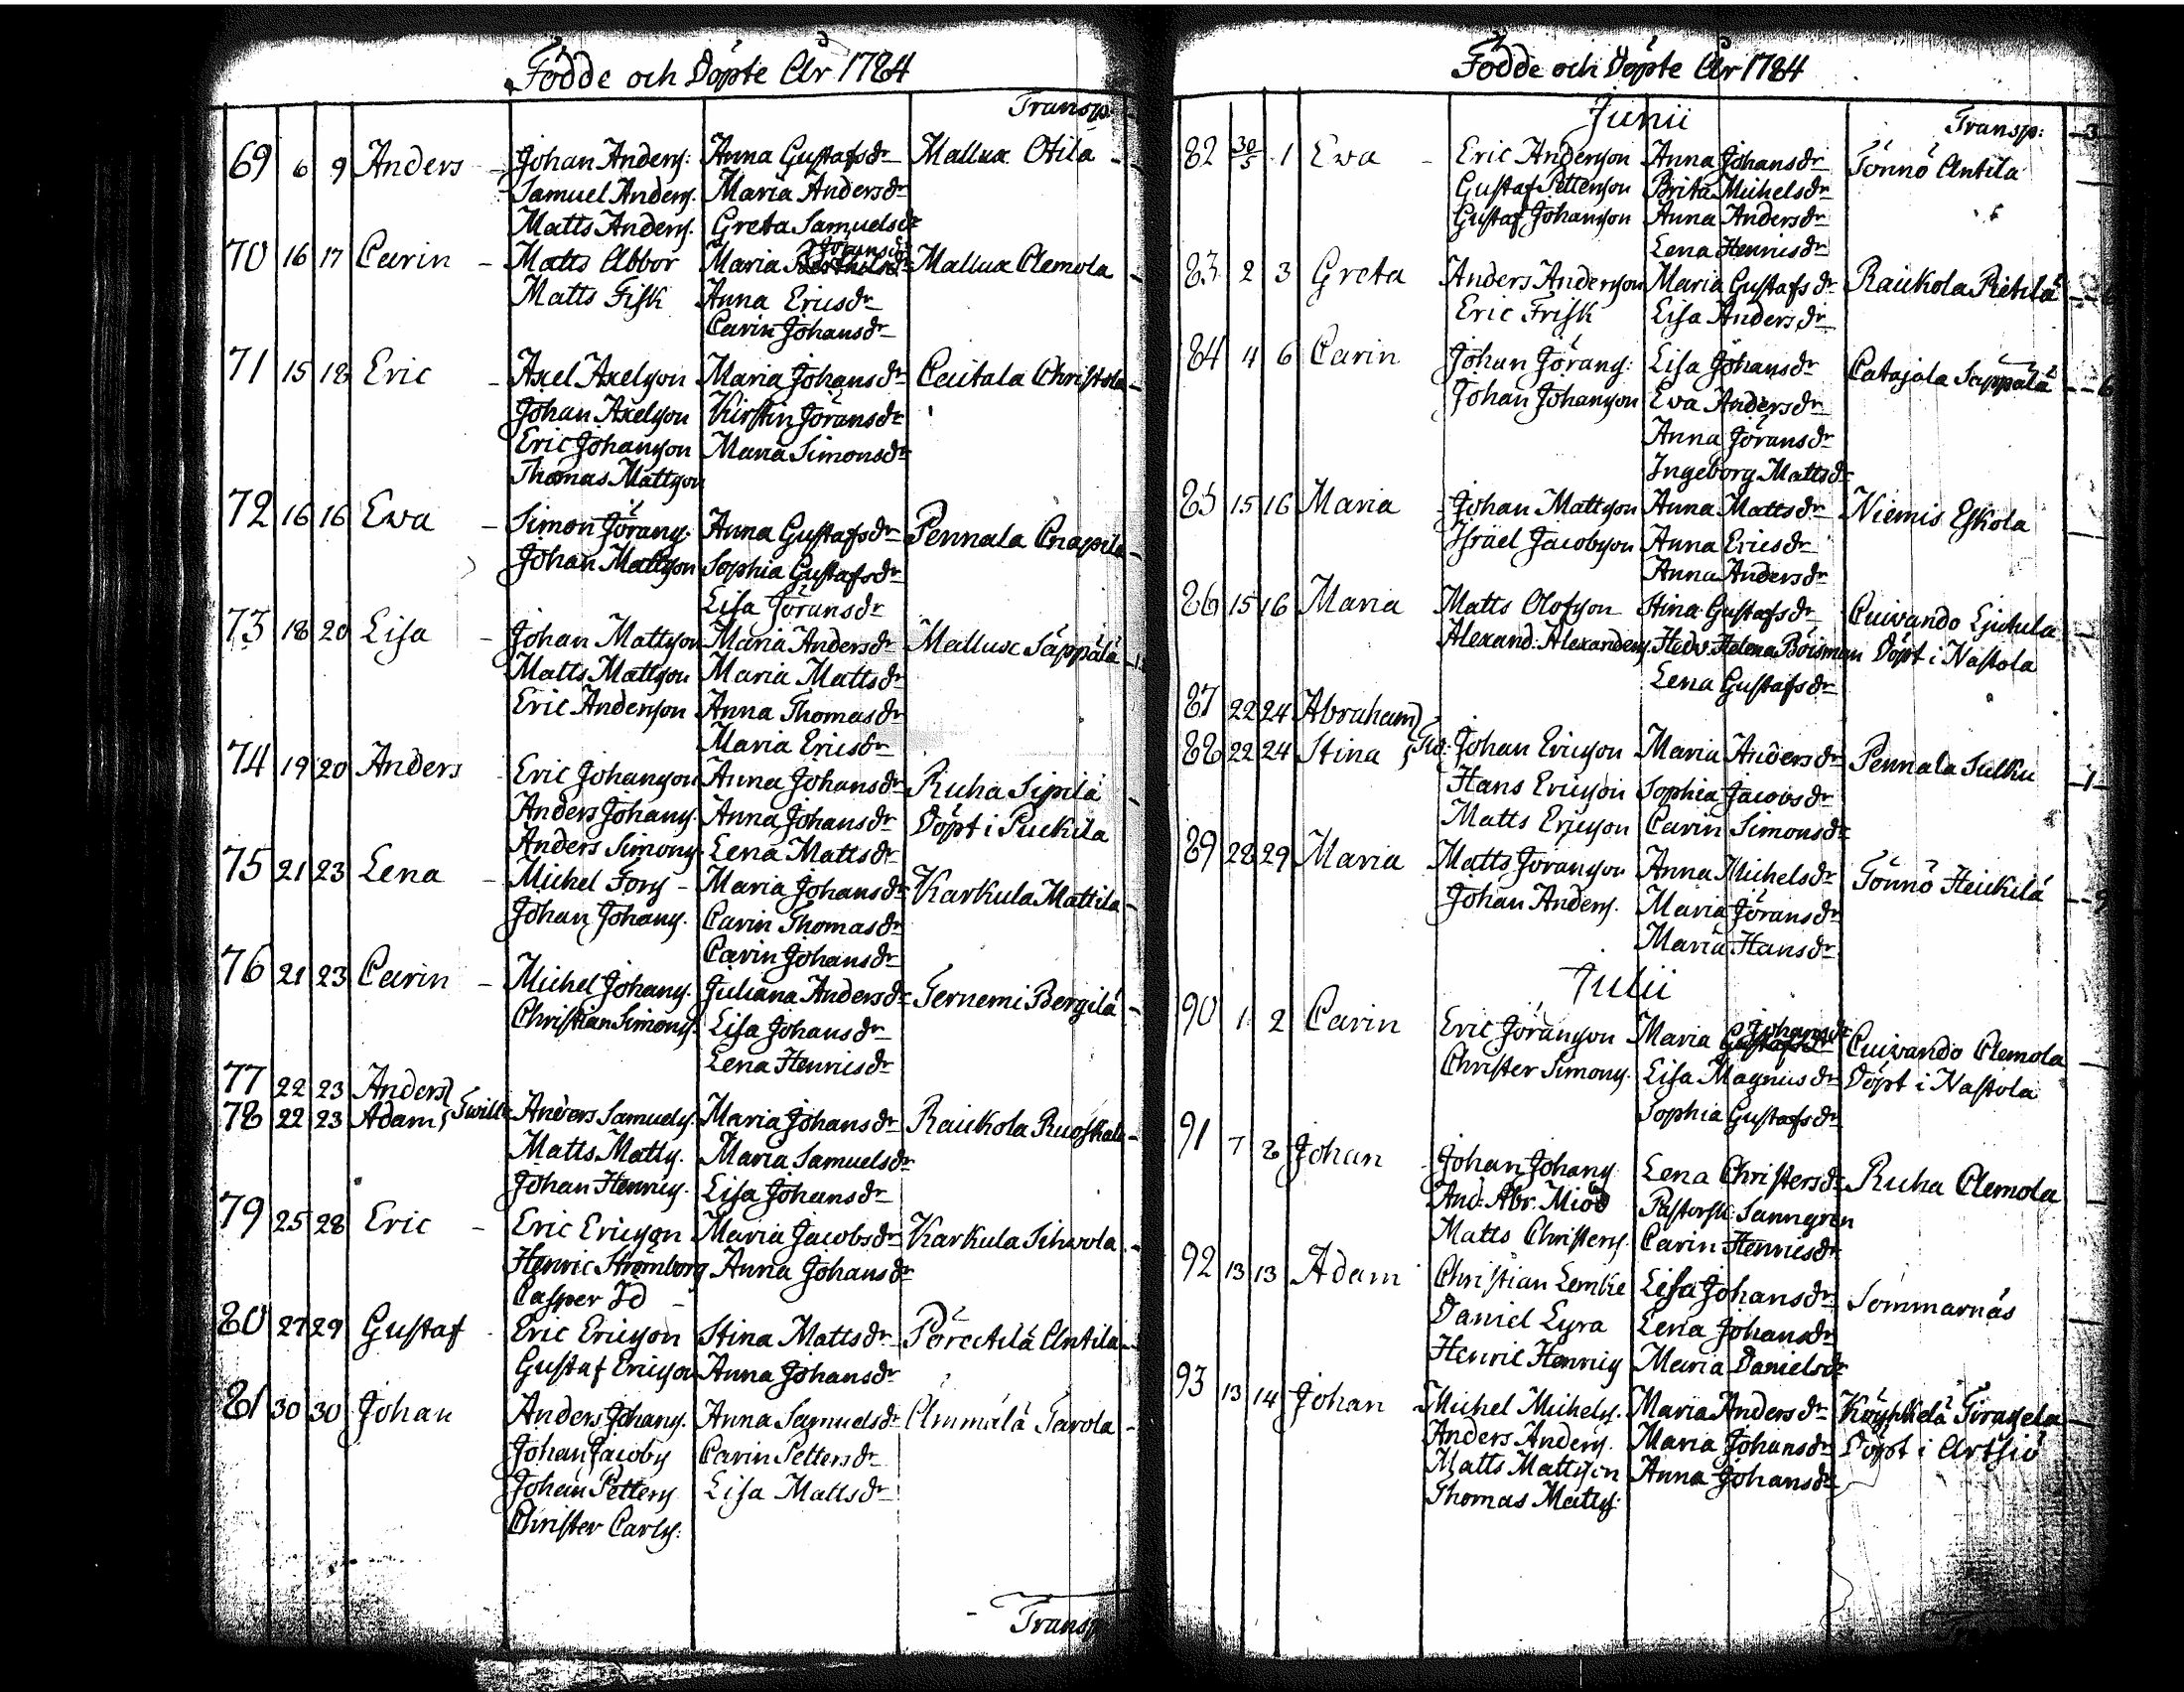 Födde och Döpte År 1784
Transp.
69 6 9 Anders Johan Anders: Anna Gustafsdr Mallux Otila
Samuel Anders. Maria Andersdr
Matts Anders. Greta Samuelsdr
Johansdr
70 16 17 Carin Matts Abbor Maria Mallux Clemola
Matts Fisk Anna Ericsdr
Carin Johansdr
71 15 18 Eric Axel Axelsson Maria Johansdr Cuitala Christola
Johan Axelsson Kirstin Jöransdr
Eric Johansson Maria Simonsdr
Thomas Mattsson
72 16 16 Ewa Simon Jörans: Anna Gustafsdr Pennala Cnapila
Johan Mattsson Sophia Gustafsdr
Lisa Jöransdr
73 18 20 Lisa Johan Mattsson Maria Andersdr Mallux Säppälä
Matts Mattsson Maria Mattsdr
Eric Andersson Anna Thomasdr
Maria Ericsdr
74 19 20 Anders Eric Johansson Anna Johansdr Ruha Sipilä
Anders Johans. Anna Johansdr Döpt i Puckila
Anders Simons. Lena Mattsdr
75 21 23 Lena Michel Fors Maria Johansdr Karkula Mattila
Johan Johans. Carin Thomasdr
Carin Johansdr
76 21 23 Carin Michel Johans. Juliana Andersdr Ternemi Bergilä
Christian Simons. Lisa Johansdr
Lena Henricsdr
77 22 23 Anders
78 22 23 Adam Twill: Anders Samuels. Maria Johansdr Raickola Ruoskala
Matts Matts. Maria Samuelsdr
Johan Henrics. Lisa Johansdr
79 25 28 Eric Eric Ericsson Maria Jacobsdr Karkula Sihvola
Henric Strömborg Anna Johansdr
Casper Id
80 27 29 Gustaf Eric Ericsson Stina Mattsdr Pörectilä Antila
Gustaf Ericsson Anna Johansdr
81 30 30 Johan Anders Johans. Anna Samuelsdr Ämmälä Tavola
Johan Jacobs Carin Pettersdr
Johan Petters Lisa Mattsdr
Christer Carls.
Transp
Födde och Döpte År 1784
Junii
Transp: 3
82 30/5 1 Ewa Eric Andersson Anna Johansdr Tönnö Antila
Gustaf Pettersson Brita Michelsdr
Gustaf Johansson Anna Andersdr
Lena Henricsdr
83 2 3 Greta Anders Andersson Maria Gustafsdr Raickola Pietilä
Eric Frisk Lisa Andersdr
84 4 6 Carin Johan Jörans: Lisa Johansdr Catajala Säppälä 6
Johan Johansson Ewa Andersdr
Anna Jöransdr
Ingeborg Mattsdr
85 15 16 Maria Johan Mattsson Anna Mattsdr Niemis Eskola
Israel Jacobsson Anna Ericsdr
Anna Andersdr
86 15 16 Maria Matts Olofsson Stina Gustafsdr Cuivando Ljutula
Alexand. Alexanders. Hedv. Helena Boisman Döpt i Nastola
Lena Gustafsdr
87 22 24 Abraham
88 22 24 Stina Johan Ericsson Maria Andersdr Pennala Sulku 1
Hans Ericsson Sophia Jacobsdr
Matts Ericsson Carin Simonsdr
89 28 29 Maria Matts Jöransson Anna Michelsdr Tönnö Heickilä 9
Johan Anders. Maria Jöransdr
Maria Hansdr
Julii
Johansdr
90 1 2 Carin Eric Jöransson Maria Cuivando Clemola
Christer Simons. Lisa Magnusdr Döpt i Nastola
Sophia Gustafsdr
91 7 8 Johan Johan Johans Lena Christersdr Ruha Clemola
And. Abr. Miöd Pastorsk: Sanngren
Matts Christers. Carin Henricsdr
92 13 13 Adam Christian Lemke Lisa Johansdr Sommarnäs
Daniel Lyra Lena Johansdr
Henric Henrics Maria Danielsdr
93 13 14 Johan Michel Michels. Maria Andersdr
Anders Anders. Maria Johansdr Döpt i Artsiö
Matts Mattsson Anna Johansdr
Thomas Matts.